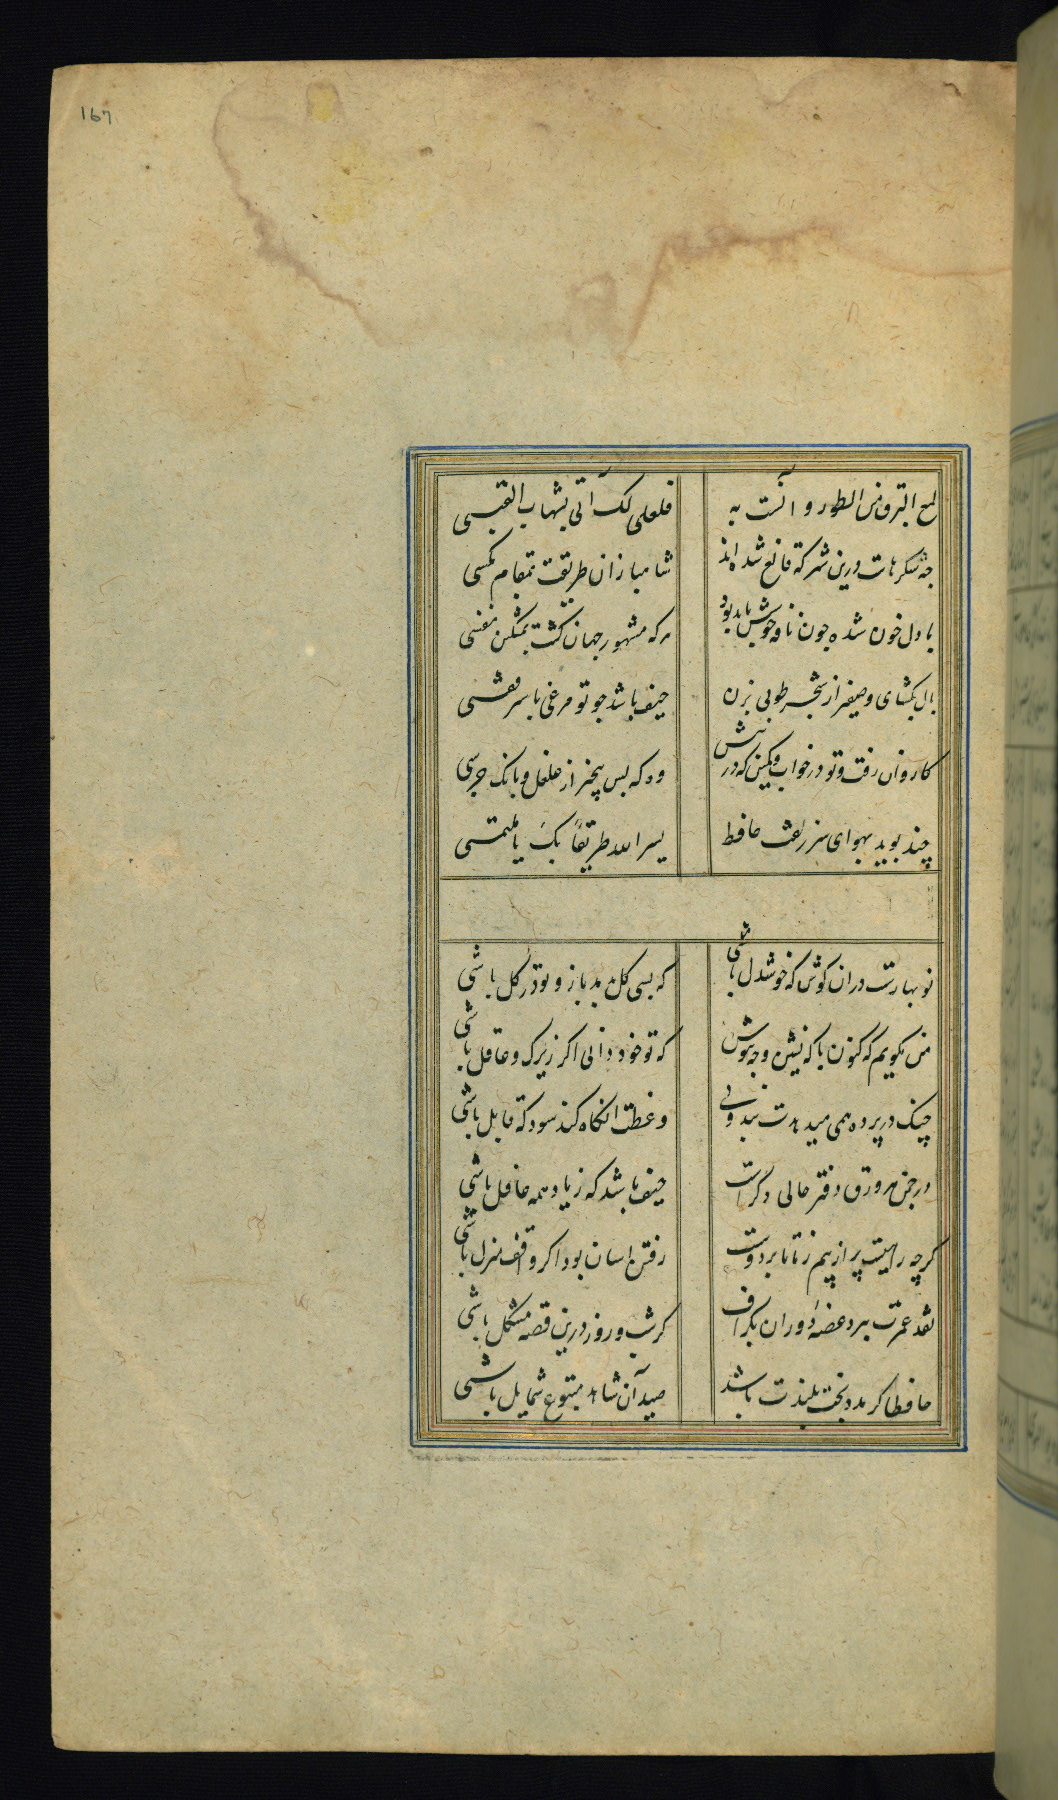 167
لمع البرق من الطور و آنست به
فلعلی لک آتی بشهاب القبسی
چه شکرهاست درین شهر که قانع شده‌اند
شاهبازان طریقت بمقام مکسی
با دل خون شده چون نافه خوش باید بود
هر که مشهور جهان کشت بمشکین نفسی
بال بکشای و صفیر از شجر طوبی زن
حیف باشد چو تو مرغی باسیر قفسی
کاروان رفت و تو در خواب و کمین که در پیش
وه که بس بیخبر از غلغل و بانک جرسی
چند پوید بهوای سر زلفت حافظ
یسر الله طریقاً بک یا ملتمسی
نو بهارست دران کوش که خوشدل باشی
که بسی کل بدمد باز و تو در کل باشی
من نکویم که کنون با که نشین و چه بنوش
که تو خود دانی اکر زیرک و عاقل باشی
چنک در پرده همی میدهدت پند ولی
وعظت انکاه کند سود که قابل باشی
در چمن هر ورق دفتر حالی دکرست
حیف باشد که ز یاد همه غافل باشی
کرچه راهیست پر از بیم ز ما تا بر دوست
رفتن اسان بود اکر واقف منزل باشی
نقد عمرت ببرد غصه دوران بکزاف
کر شب و روز درین قصه مشکل باشی
حافظا کر مدد بخت بلندت باشد
صید آن شاهد مطبوع شمایل باشی